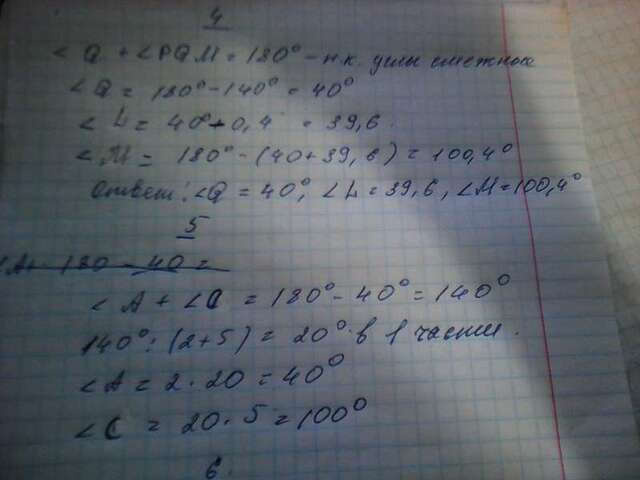 4
∠Q + ∠PQM = 180° - т.к. углы смежные
∠Q = 180° - 140° = 40°
∠L = 40° - 0,4 = 39,6.
∠M = 180° - (40 + 39,6) = 100,4°
Ответ: ∠Q = 40°, ∠L = 39,6, ∠M = 100,4°
5
180 - 40 =
∠A + ∠C = 180° - 40° = 140°
140° : (2+5) = 20° в 1 части.
∠A = 2 · 20 = 40°
∠C = 20 · 5 = 100°
6.